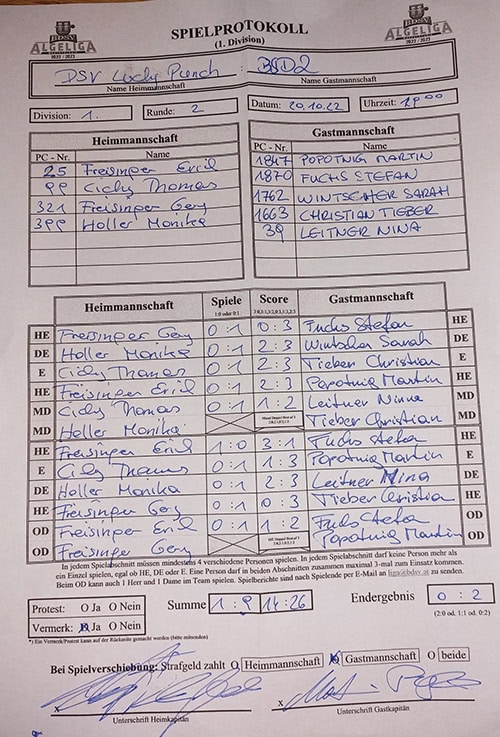 BDSV
ALGELIGA
2022 / 2023
SPIELPROTOKOLL
(1. Division)
BDSV
ALGELIGA
2022 / 2023
DSV Lucky Punch : BSD2
Name Heimmannschaft Name Gastmannschaft
Division: 1. Runde: 2 Datum: 20.10.22 Uhrzeit: 19 00
Heimmannschaft Gastmannschaft
PC - Nr. Name PC - Nr. Name
25 Freisinger Erich 1847 POPOTNIG MARTIN
99 Cichy Thomas 1870 FUCHS STEFAN
321 Freisinger Gery 1762 WINTSCHER SARAH
399 Holler Monika 1663 CHRISTIAN TIEBER
39 LEITNER NINA
Heimmannschaft Spiele Score Gastmannschaft
1:0 oder 0:1
HE Freisinger Gery 0:1 0:3 Fuchs Stefan HE
DE Holler Monika 0:1 2:3 Wintscher Sarah DE
E Cichy Thomas 0:1 2:3 Tieber Christian E
HE Freisinger Erich 0:1 2:3 Popotnig Martin HE
MD Cichy Thomas 0:1 1:2 Leitner Nina MD
MD Holler Monika Tieber Christian MD
HE Freisinger Erich 1:0 3:1 Fuchs Stefan HE
E Cichy Thomas 0:1 1:3 Popotnig Martin E
DE Holler Monika 0:1 2:3 Leitner Nina DE
HE Freisinger Gery 0:1 0:3 Tieber Christian HE
OD Freisinger Erich 0:1 1:2 Fuchs Stefan OD
OD Freisinger Gery Popotnig Martin OD
In jedem Spielabschnitt müssen mindestens 4 verschiedene Personen spielen. In jedem Spielabschnitt darf keine Person mehr als
ein Einzel spielen, egal ob HE, DE oder E. Eine Person darf in beiden Abschnitten zusammen maximal 3-mal zum Einsatz kommen.
Beim OD kann auch 1 Herr und 1 Dame im Team spielen. Spielberichte sind nach Spielende per E-Mail an liga@bdsv.at zu senden.
Protest: O Ja O Nein Summe 1:9 14:26 Endergebnis 0:2
Vermerk: O Ja O Nein (2:0 od. 1:1 od. 0:2)
*) Ein Vermerk/Protest kann auf der Rückseite gemacht werden (bitte mitsenden)
Bei Spielverschiebung: Strafgeld zahlt O Heimmannschaft O Gastmannschaft O beide
x x
Unterschrift Heimkapitän Unterschrift Gastkapitän